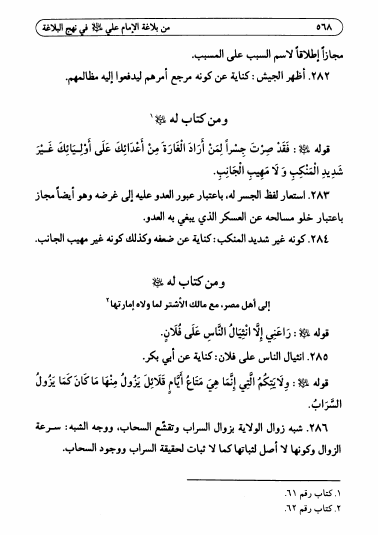 ٥٦٨ من بلاغة الإمام علي ﵇ في نهج البلاغة
مجازاً إطلاقاً لاسم السبب على المسبب.
٢٨٢. أظهر الجيش: كناية عن كونه مرجع أمرهم ليدفعوا إليه مظالمهم.
ومن كتاب له ﵇ ١
قوله ﵇: فَقَدْ صِرْتَ جِسْراً لِمَنْ أَرَادَ الْغَارَةَ مِنْ أَعْدَائِكَ عَلَى أَوْلِيَائِكَ غَيْرَ
شَدِيدِ الْمَنْكِبِ وَلَا مَهِيبِ الْجَانِبِ.
٢٨٣. استعار لفظ الجسر له، باعتبار عبور العدو عليه إلى غرضه وهو أيضاً مجاز
باعتبار خلو مسالحه عن العسكر الذي يبغي به العدو.
٢٨٤. كونه غير شديد المنكب: كناية عن ضعفه وكذلك كونه غير مهيب الجانب.
ومن كتاب له ﵇
إلى أهل مصر، مع مالك الأشتر لما ولاه إمارتها ٢
قوله ﵇: رَاعَنِي إِلَّا انْثِيَالُ النَّاسِ عَلَى فُلَانٍ.
٢٨٥. انثيال الناس على فلان: كناية عن أبي بكر.
قوله ﵇: وِلَايَتِكُمُ الَّتِي إِنَّمَا هِيَ مَتَاعُ أَيَّامٍ قَلَائِلَ يَزُولُ مِنْهَا مَا كَانَ كَمَا يَزُولُ
السَّرَابُ.
٢٨٦. شبه زوال الولاية بزوال السراب وتقشّع السحاب، ووجه الشبه: سرعة
الزوال وكونها لا أصل لثباتها كما لا ثبات لحقيقة السراب ووجود السحاب.
١. كتاب رقم ٦١.
٢. كتاب رقم ٦٢.